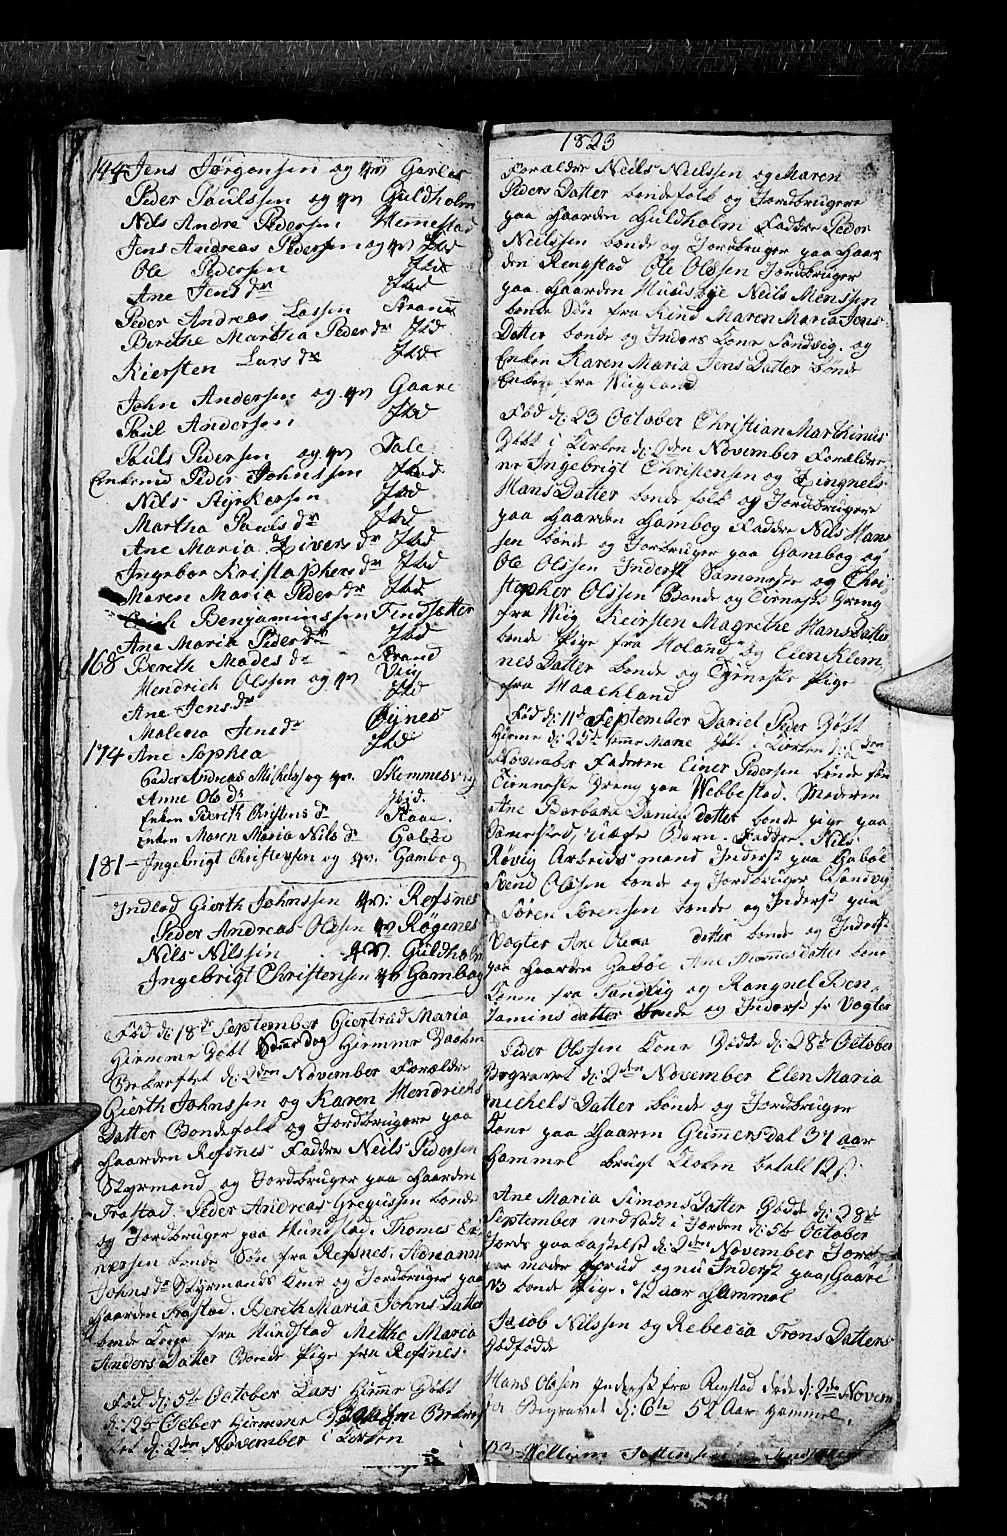 144 Jens Jørgensen og qv Garlas
Peder Paulssen og qv Guldholm
Nils Andre Pedersen Hemestad
Jens Andreas Pedersen og qv Ibd
Ole Pedersen Ibd
Ane Jens dr Ibd
Peder Andreas Lassen Strand
Berithe Martha Peder dr Ibd
Kiersten Lars dr Ibd
John Andersen og qv Gaare
Poul Andersen Ibd
Pouls Pedersen og qv Dale
Enkemd Peder Johnssen Ibd
Nils Styrkersen Ibd
Martha Pauls dr Ibd
Ane Maria Sivers dr Ibd
Ingebor Kristaphers dr Ibd
Maren Maria Peder dr Ibd
Erich Benjaminssen Findsætter
Ane Maria Peder dr Ibd
168 Berith Mades dr Strand
Hendrich Olssen og qv Viig
Ane Jens dr Ibd
Malena Jens dr Øynes
174 Ane Sophia Ibd
Peder Andreas Michels og qv. Skommesvig
Anne Ols dr Ibid.
Enken Berith Christens dr Staae
Enken Maren Maria Nils dr Gabøe
181 – Ingebrigt Christensen og qv. Gambog
Indlod Gierth Johnssen qv: Refsnes
Peder Andreas Olssen qv Røgenes
Nils Nilssen qv Guldholm
Ingebrigt Christensen qv Gambog
Fød d: 18de September Giertrud Maria
Hiemme Døbt samme dag Hiemme Daaben
Bekreftet d: 2den November Forældre
Gierth Johnssen og Karen Hendrichs
Datter Bondefolk og Jordbrugere paa
Gaarden Refsnes Faddre Neils Pedersen
Styrmand og Jordbruger paa Gaarden
Frastad. Peder Andreas Gregussen bonde
og Jordbruger paa Hundstad. Thomes Ei
nersen bonde Søn fra Refsnes. Komann
Johns dr Styrmands Kone og Jordbruger paa
Gaarden Frastad. Bereth Maria Johns Datter
bonde Kone fra Hundstad Methe Maria
Anders Datter Bonde Pige fra Refsnes
Fød d: 5te October Lars Hieme Døbt
d: 25 October Hiemme Daaben Bekref
tet d: 2den November i Kirken
1823
Forældre Neils Neilssen og Maren
Peders Datter bondefolk og Jordbrugere
paa Gaarden Guldholm Faddre Peder
Neilssen bonde og Jordbruger paa Gaar
den Rengstad Ole Olssen Jordbruger
paa Gaarden Huusbye Neils Menssen
bonde Søn fra Kind Maren Maria Jens
Datter bonde og Inders Kone Sandvig. og
Enken Karen Maria Jens Datter bonde
Enken fra Wigland
Fød d: 23 October Christian Marthinus
Døbt i Kirken d: 2den November Forældre
ne Ingebrigt Christensen og Zingnels
Hans Datter bonde folk og Jordbrugere
paa Gaarden Gambog Faddre Nils Han
sen bonde og Jordbruger paa Gambog og
Ole Olssen Inderst Sammested og Chri
stopher Olssen Bonde og Tieneste Dreng
fra Wiig Keirsten Magrethe Hans Datter
bonde Pige fra Holand og Elen Klem
nes Datter bonde og Tieneste Pige
fra Haachland
Fød d: 11te September Daniel Peder Døbt
Hieme d: 25de samme Maane Døbt i Kirken d: 2den
November Faderen Einer Pedersen bonde søn
Tieneste Dreng paa Webbestad. Moderen
Ane Barbara Daniels datter bonde pige paa
Samested, uægte Barn. Faddre. Nils
Røvig Arbeids mand Inderst paa Gabøe
Svend Olssen bonde og Jordbruger Sandvig
Søren Sørensen bonde og Inderst paa
Vogter Ane datter bonde og Inderst
paa Gaarden Gabøe Ane Monnes datter bonde
Konen fra Sandvig og Rangnel Ben
jamins datter bonde og Inderst fr Vogter
Peder Olssen Kone Døde d: 28de October
Begravet d: 2den November Elen Maria
Michels Datter bonde og Jordbruger
Kone paa Gaaren Gumersdal 37 aar
Gammel brugt Kloken betalt 12 s
Ane Maria Simons Datter Døde d: 28de
September nedsadt i Jorden d: 5te October
Jords paa kastelse d: 2den November
moder og nu Inderst paa Gaare
NB bonde Pige. 12 aar Gammel
Jacob Nilssen og Rebecca Trons Datters
Dødfødde
Hans Olssen Inderst fra Renstad døde d: 2den Novem
Begravet d: 6te 52 Aar Gammel.